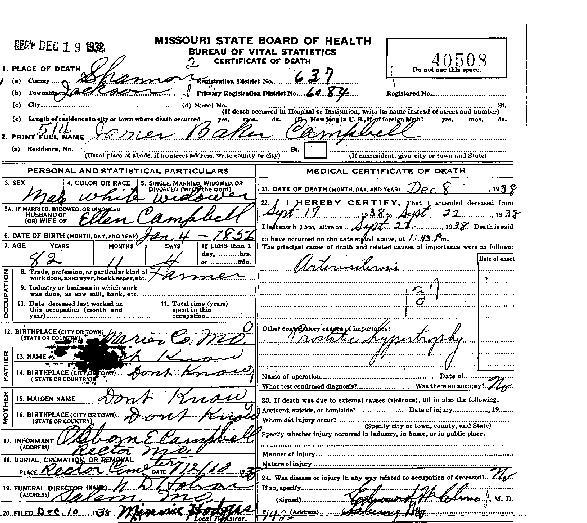 REC'D DEC 19 1938
MISSOURI STATE BOARD OF HEALTH
BUREAU OF VITAL STATISTICS
CERTIFICATE OF DEATH
40508
Do not use this space.
1. PLACE OF DEATH
(a) County Shannon Registration District No. 637
(b) Township Jackson Primary Registration District No. 6084 Registered No.
(c) City (d) Street No. St.
(If death occurred in Hospital or Institution, write its name instead of street and number)
(e) Length of residence in city or town where death occurred yrs. mos. ds. (f) How long in U. S., if of foreign birth? yrs. mos. ds.
2. PRINT FULL NAME Baker Campbell
(a) Residence, No. St.
(Usual place of abode, if no street address, write county or city) (If nonresident, give city or town and State)
PERSONAL AND STATISTICAL PARTICULARS
3. SEX Male 4. COLOR OR RACE white 5. SINGLE, MARRIED, WIDOWED, OR DIVORCED widower
5A. IF MARRIED, WIDOWED, OR DIVORCED
HUSBAND OF (OR) WIFE OF Ellen Campbell
6. DATE OF BIRTH (MONTH, DAY, AND YEAR) Jan 4 - 1856
7. AGE YEARS 82 MONTHS 11 DAYS 4
OCCUPATION
8. Trade, profession, or particular kind of work done Farmer
9. Industry or business in which work was done, as saw mill, bank, etc.
10. Date deceased last worked at this occupation (month and year)
11. Total time (years) spent in this occupation
12. BIRTHPLACE (CITY OR TOWN) (STATE OR COUNTRY) Maries Co. Mo
FATHER
13. NAME Know
14. BIRTHPLACE (CITY OR TOWN) (STATE OR COUNTRY) Dont Know
MOTHER
15. MAIDEN NAME Dont Know
16. BIRTHPLACE (CITY OR TOWN) (STATE OR COUNTRY) Dont Know
17. INFORMANT Osborn E Campbell
(ADDRESS) Rector Mo
18. BURIAL, CREMATION, OR REMOVAL
PLACE Rector DATE 12/10 38
19. FUNERAL DIRECTOR
(ADDRESS) Salem, Mo.
20. FILED Dec 10 1938 Minnie
Local Registrar.
MEDICAL CERTIFICATE OF DEATH
21. DATE OF DEATH (MONTH, DAY, AND YEAR) Dec 8 1938
22. I HEREBY CERTIFY, That I attended deceased from
Sept 19 38, Sept 22, 1938
I last saw h alive on Sept 22 1938 Death is said
to have occurred on the date stated above, at 1:45 P.m.
The principal cause of death and related causes of importance were as follows:
Date of onset
Other contributory causes of importance:
Prostatic Hypertrophy
Name of operation Date of
What test confirmed diagnosis? Was there an autopsy? No
23. If death was due to external causes (violence), fill in also the following:
Accident, suicide, or homicide? Date of injury 19
Where did injury occur?
(Specify city or town, county, and State)
Specify whether injury occurred in industry, in home, or in public place.
Manner of injury
Nature of injury
24. Was disease or injury in any way related to occupation of deceased? No
If so, specify
(Signed) M. D.
(Address)